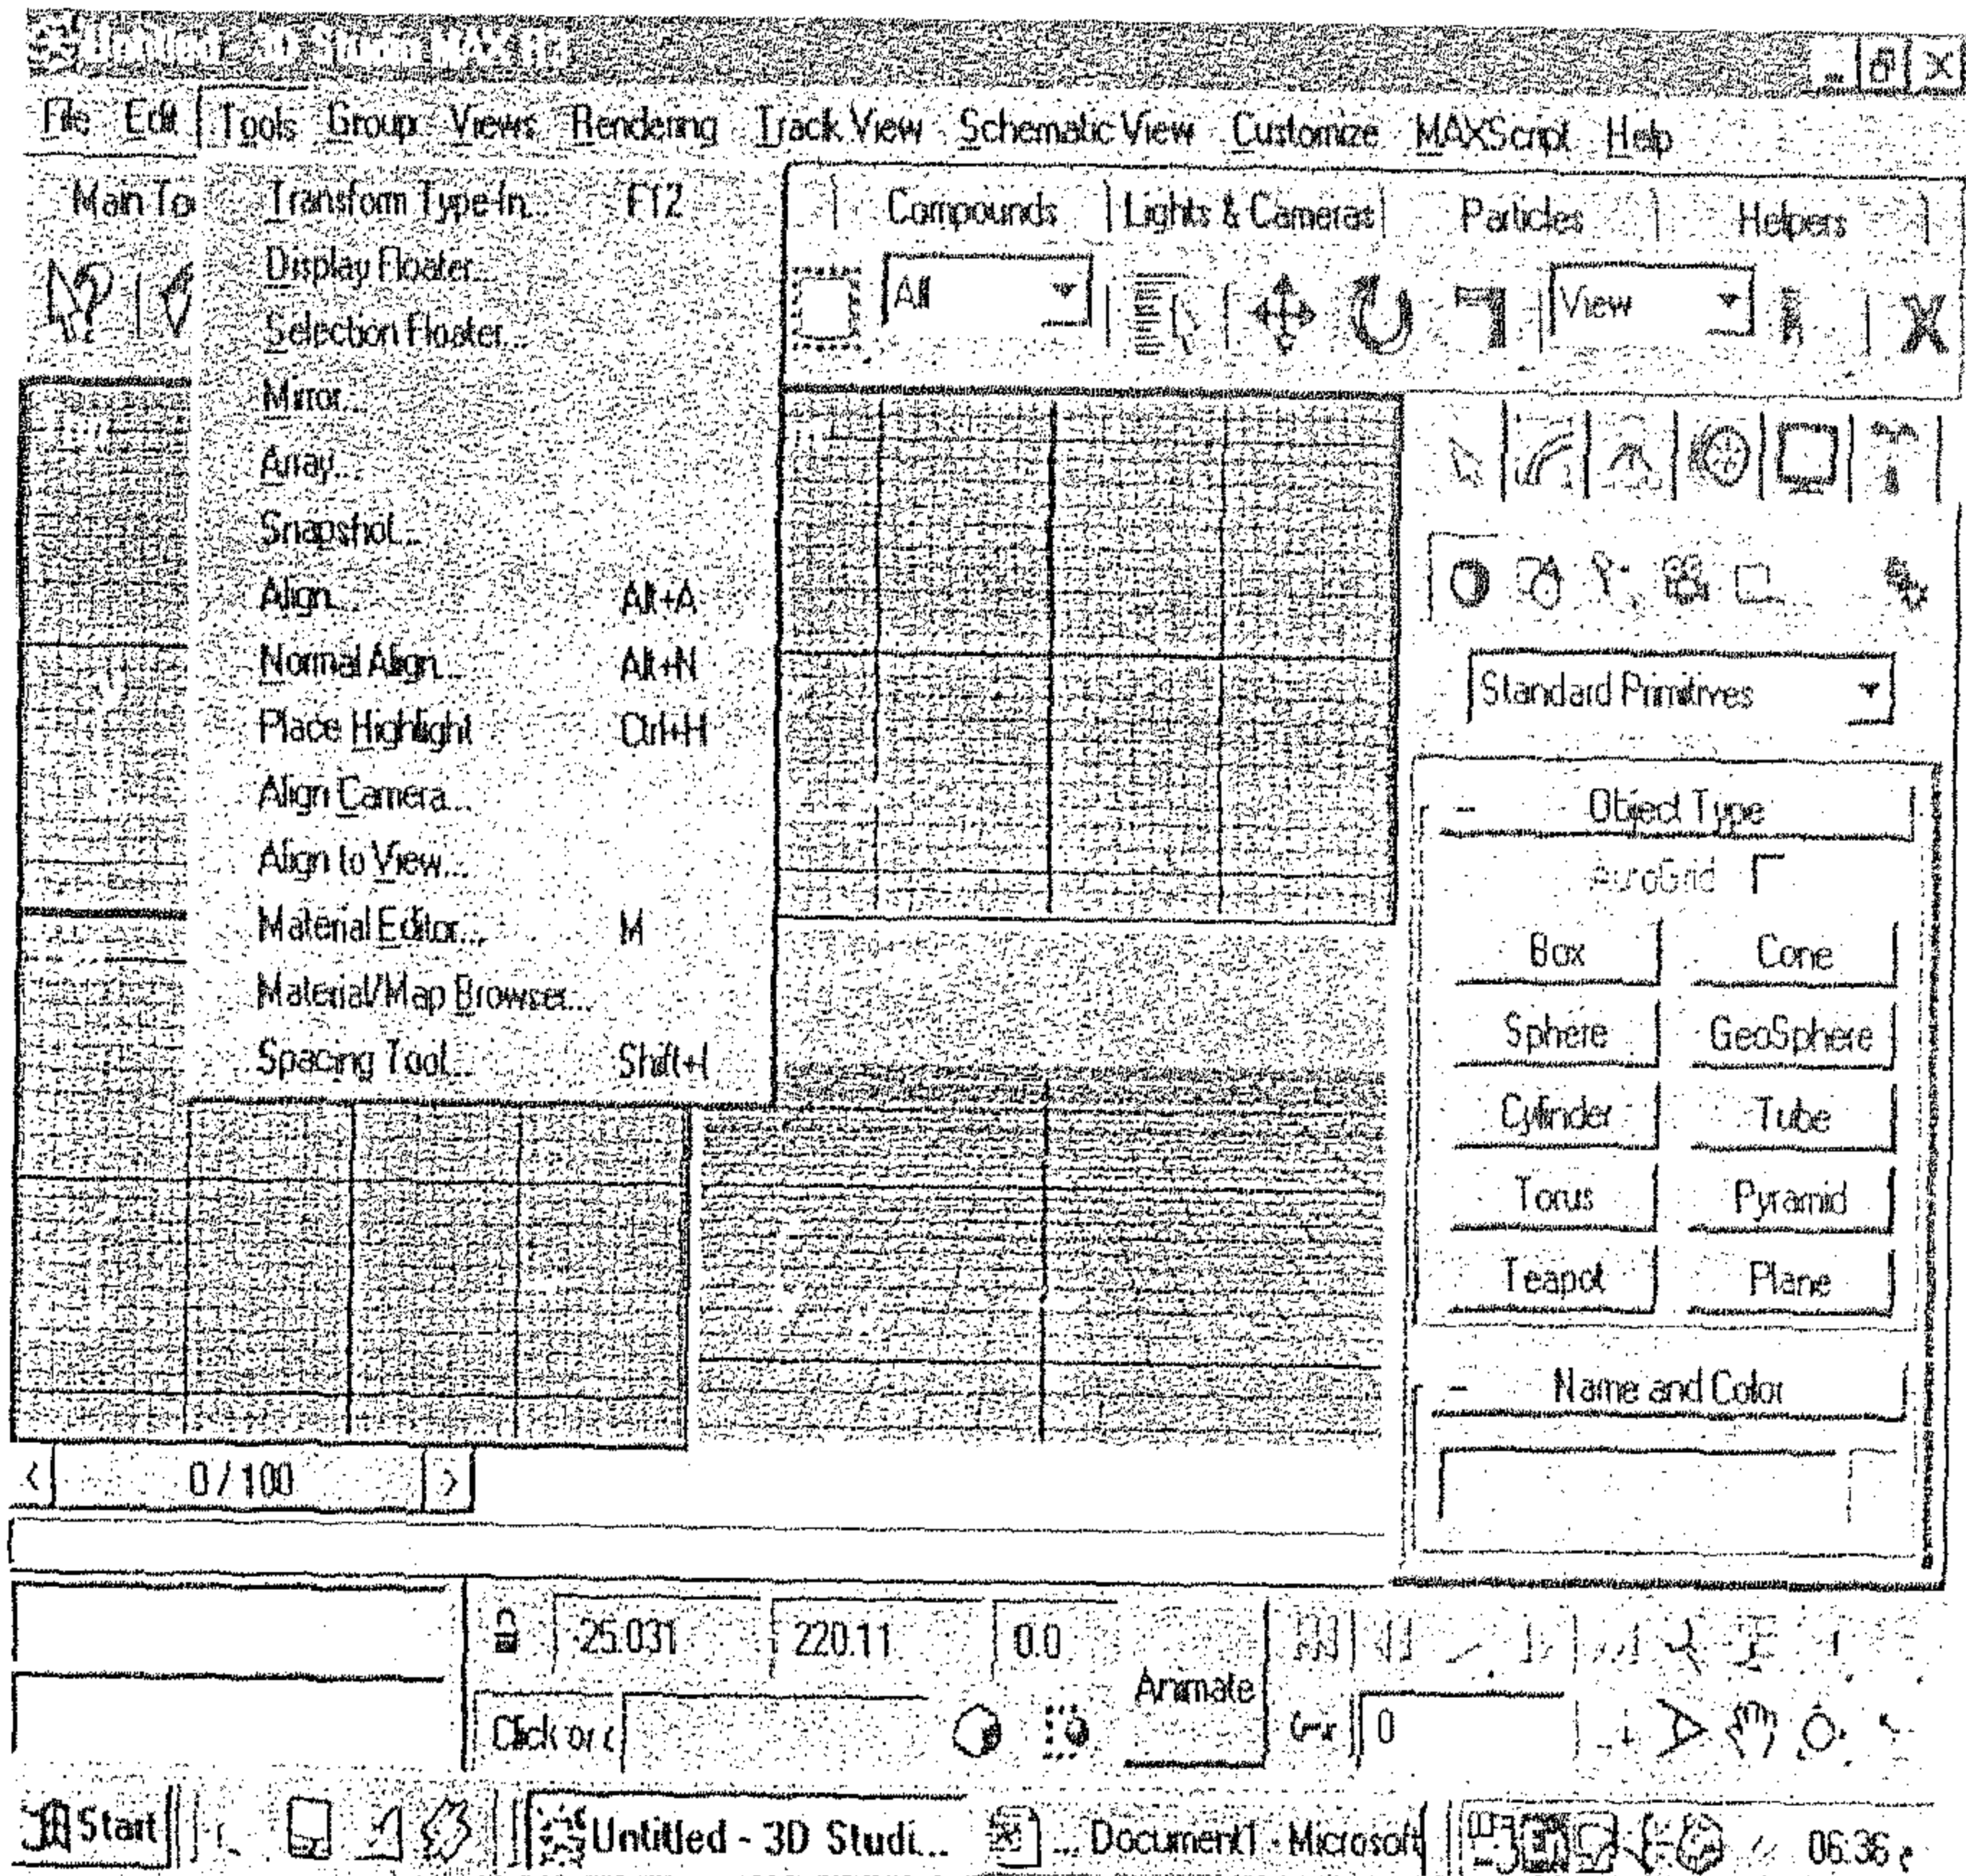 Untitled - 3D Studio MAX R3
File Edit Tools Group Views Rendering Track View Schematic View Customize MAXScript Help
Main To
Compounds Lights & Cameras Particles Helpers
All
View
Transform Type-In... F12
Display Floater...
Selection Floater...
Mirror...
Array...
Snapshot...
Align... Alt+A
Normal Align... Alt+N
Place Highlight Ctrl+H
Align Camera...
Align to View...
Material Editor... M
Material/Map Browser...
Spacing Tool... Shift+I
Standard Primitives
- Object Type
AutoGrid
Box Cone
Sphere GeoSphere
Cylinder Tube
Torus Pyramid
Teapot Plane
- Name and Color
< 0 / 100 >
-25.031 220.11 0.0
Animate
Click or c
0
Start
Untitled - 3D Studi...
... Document1 - Microsoft
06:36 م